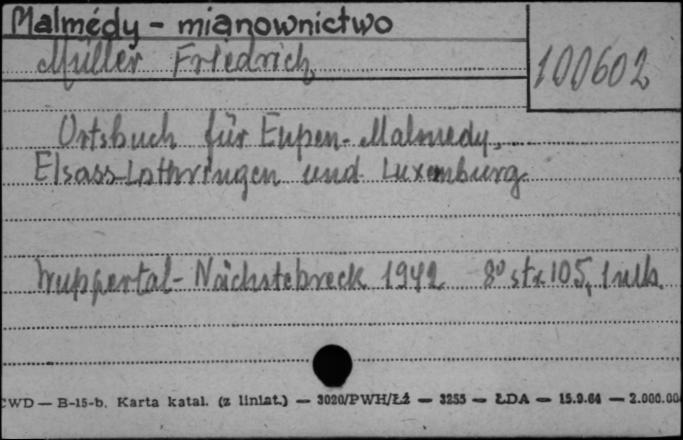 Malmédy - mianownictwo
Müller Friedrich
100602
Ortsbuch für Eupen-Malmedy,
Elsass-Lothringen und Luxemburg
Wuppertal-Nächstebreck 1942 8° str. 105,
CWD — B-15-b. Karta katal. (z liniat.) — 3020/PWH/Łź — 3255 — ŁDA — 15.9.64 — 2.000.00